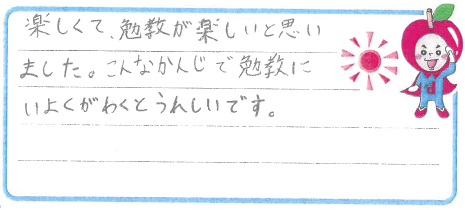 楽しくて、勉教が楽しいと思い
ました。こんなかんじで勉教に
いよくがわくとうれしいです。
d